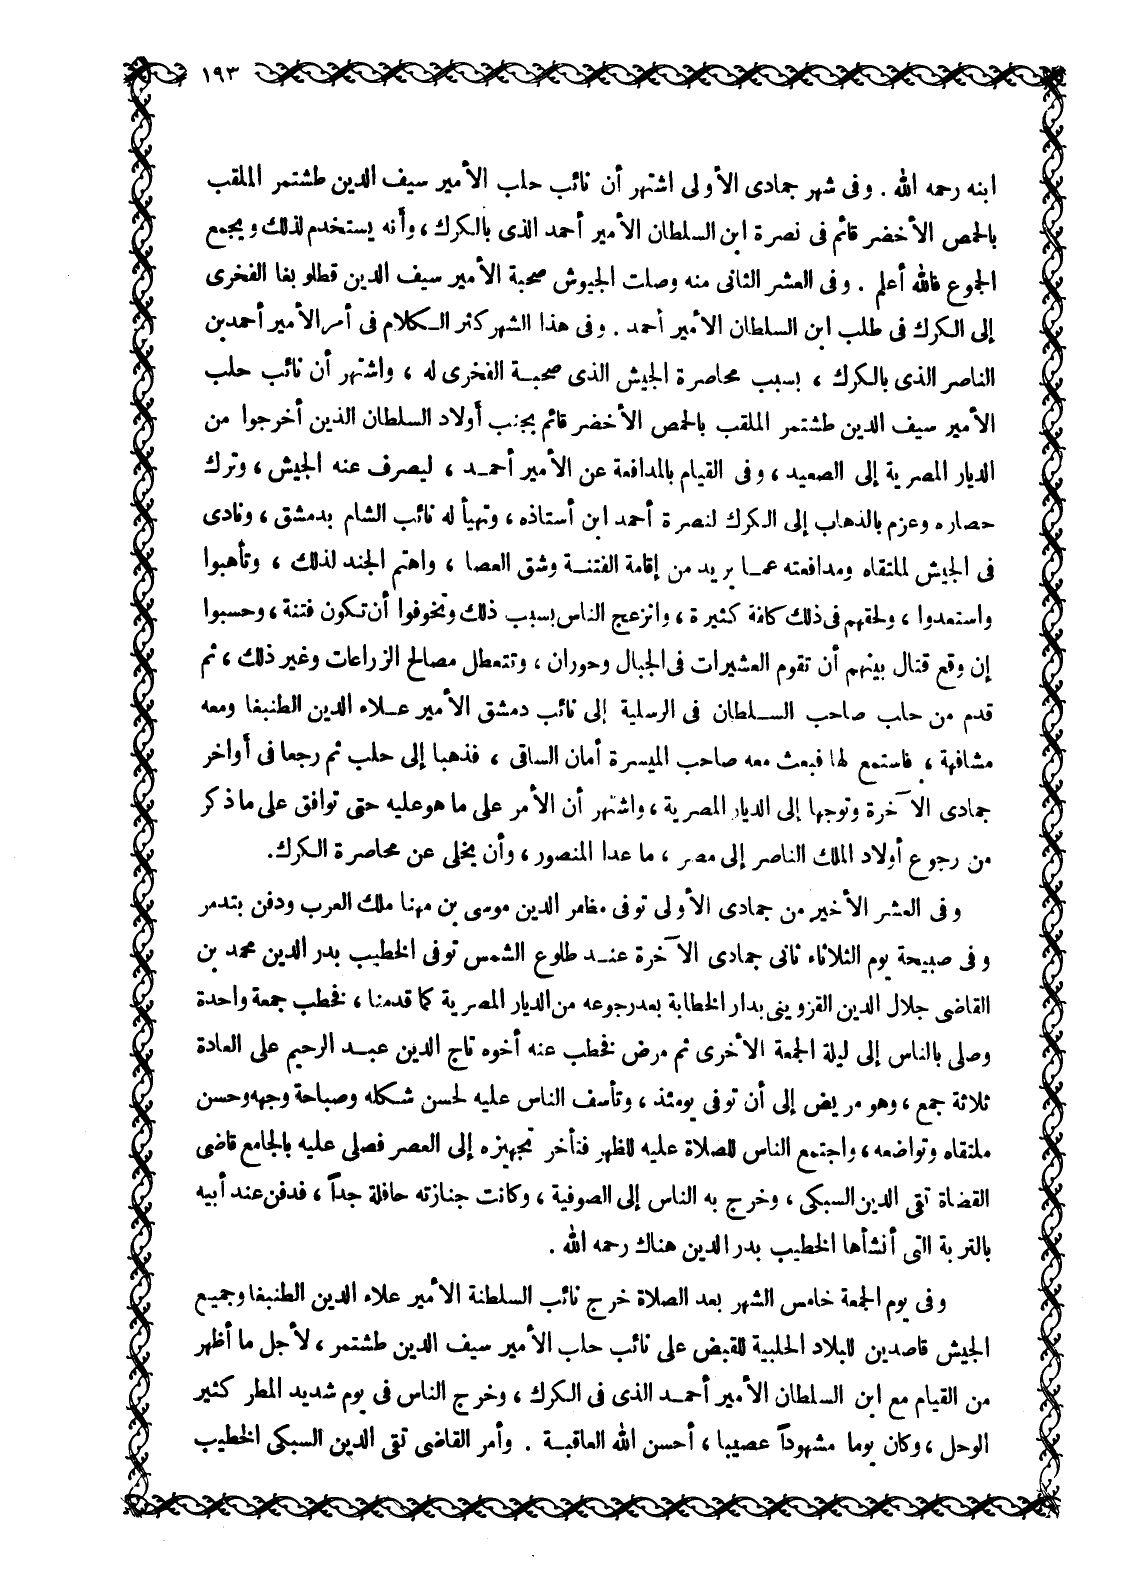 ١٩٣
ابنه رحمه الله . وفى شهر جمادى الأولى اشتهر أن نائب حلب الأمير سيف الدين طشتمر الملقب
بالحمص الأخضر قائم فى نصرة ابن السلطان الأمير أحمد الذى بالكرك ، وأنه يستخدم لذلك ويجمع
الجموع فالله أعلم . وفى العشر الثانى منه وصلت الجيوش صحبة الأمير سيف الدين قطلوبغا الفخرى
إلى الكرك فى طلب ابن السلطان الأمير أحمد . وفى هذا الشهر كثر الكلام فى أمر الأمير أحمد بن
الناصر الذى بالكرك ، بسبب محاصرة الجيش الذى صحبة الفخرى له ، واشتهر أن نائب حلب
الأمير سيف الدين طشتمر الملقب بالحمص الأخضر قائم بجنب أولاد السلطان الذين أخرجوا من
الديار المصرية إلى الصعيد ، وفى القيام بالمدافعة عن الأمير أحمد ، ليصرف عنه الجيش ، وترك
حصاره وعزم بالذهاب إلى الكرك لنصرة أحمد ابن أستاذه ، وتهيأ له نائب الشام بدمشق ، ونادى
فى الجيش لملتقاه ومدافعته عما يريد من إقامة الفتنة وشق العصا ، واهتم الجند لذلك ، وتأهبوا
واستعدوا ، ولحقهم فى ذلك كلفة كثيرة ، وانزعج الناس بسبب ذلك وتخوفوا أن تكون فتنة ، وحسبوا
إن وقع قتال بينهم أن تقوم العشيرات فى الجبال وحوران ، وتتعطل مصالح الزراعات وغير ذلك ، ثم
قدم من حلب صاحب السلطان فى الرسلية إلى نائب دمشق الأمير علاء الدين الطنبغا ومعه
مشافهة ، فاستمع لها فبعث معه صاحب الميسرة أمان الساقى ، فذهبا إلى حلب ثم رجعا فى أواخر
جمادى الآخرة وتوجها إلى الديار المصرية ، واشتهر أن الأمر على ما هو عليه حتى توافق على ما ذكر
من رجوع أولاد الملك الناصر إلى مصر ، ما عدا المنصور ، وأن يخلى عن محاصرة الكرك.
وفى العشر الأخير من جمادى الأولى توفى مظفر الدين موسى بن مهنا ملك العرب ودفن بتدمر
وفى صبيحة يوم الثلاثاء ثانى جمادى الآخرة عند طلوع الشمس توفى الخطيب بدر الدين محمد بن
القاضى جلال الدين القزوينى بدار الخطابة بعد رجوعه من الديار المصرية كما قدمنا ، فخطب جمعة واحدة
وصلى بالناس إلى ليلة الجمعة الأخرى ثم مرض فخطب عنه أخوه تاج الدين عبد الرحيم على العادة
ثلاثة جمع ، وهو مريض إلى أن توفى يومئذ ، وتأسف الناس عليه لحسن شكله وصباحة وجهه وحسن
ملتقاه وتواضعه ، واجتمع الناس للصلاة عليه للظهر فتأخر تجهيزه إلى العصر فصلى عليه بالجامع قاضى
القضاة تقى الدين السبكى ، وخرج به الناس إلى الصوفية ، وكانت جنازته حافلة جداً ، فدفن عند أبيه
بالتربة التى أنشأها الخطيب بدر الدين هناك رحمه الله .
وفى يوم الجمعة خامس الشهر بعد الصلاة خرج نائب السلطنة الأمير علاء الدين الطنبغا وجميع
الجيش قاصدين للبلاد الحلبية للقبض على نائب حلب الأمير سيف الدين طشتمر ، لأجل ما أظهر
من القيام مع ابن السلطان الأمير أحمد الذى فى الكرك ، وخرج الناس فى يوم شديد المطر كثير
الوحل ، وكان يوما مشهوداً عصيبا ، أحسن الله العاقبة . وأمر القاضى تقى الدين السبكى الخطيب